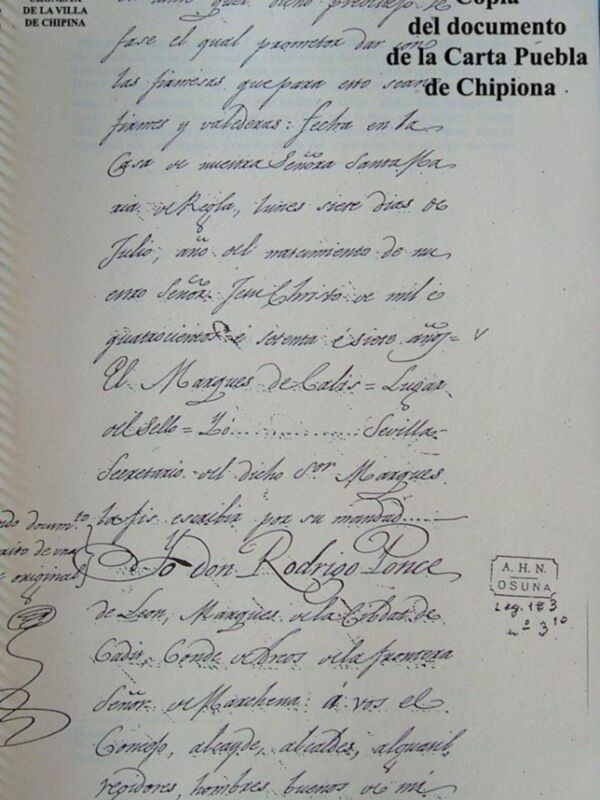 CRONISTA
DE LA VILLA
DE CHIPINA
Copia
del documento
de la Carta Puebla
de Chipiona
fase el qual prometor dar con
las firmesas que para esto sean
firmes y valederas: fecha en la
Casa de nuestra Señora Santa Ma
ria de Regla, lunes siete dias de
Julio, año del nascimiento de nu
estro Señor Jesu Christo de mil é
quatrocientos é setenta é siete años =
El Marques de Calis = Lugar
del Sello = Yó ............... Sevilla
Secretario del dicho Sor Marques
la fis escribir por su mandad......
Yo Don Rodrigo Ponce
de Leon, Marques de la Cibdat de
Cadis, Conde de Arcos de la frontera
Señor de Marchena: á vos el
Concejo, alcayde, alcaldes, alguasil
regidores, hombres buenos de mi
docum.to
de una
original
A. H. N.
OSUNA
Leg. 183
nº 3 10